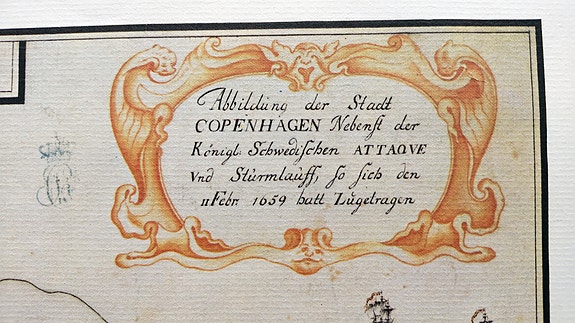 Abbildung der Stadt
COPENHAGEN Nebenſt der
Königl: Schwedischen ATTAQVE
Vnd Stürmlauff, ſo ſich den
11 Febr 1659 hatt Zůgetragen